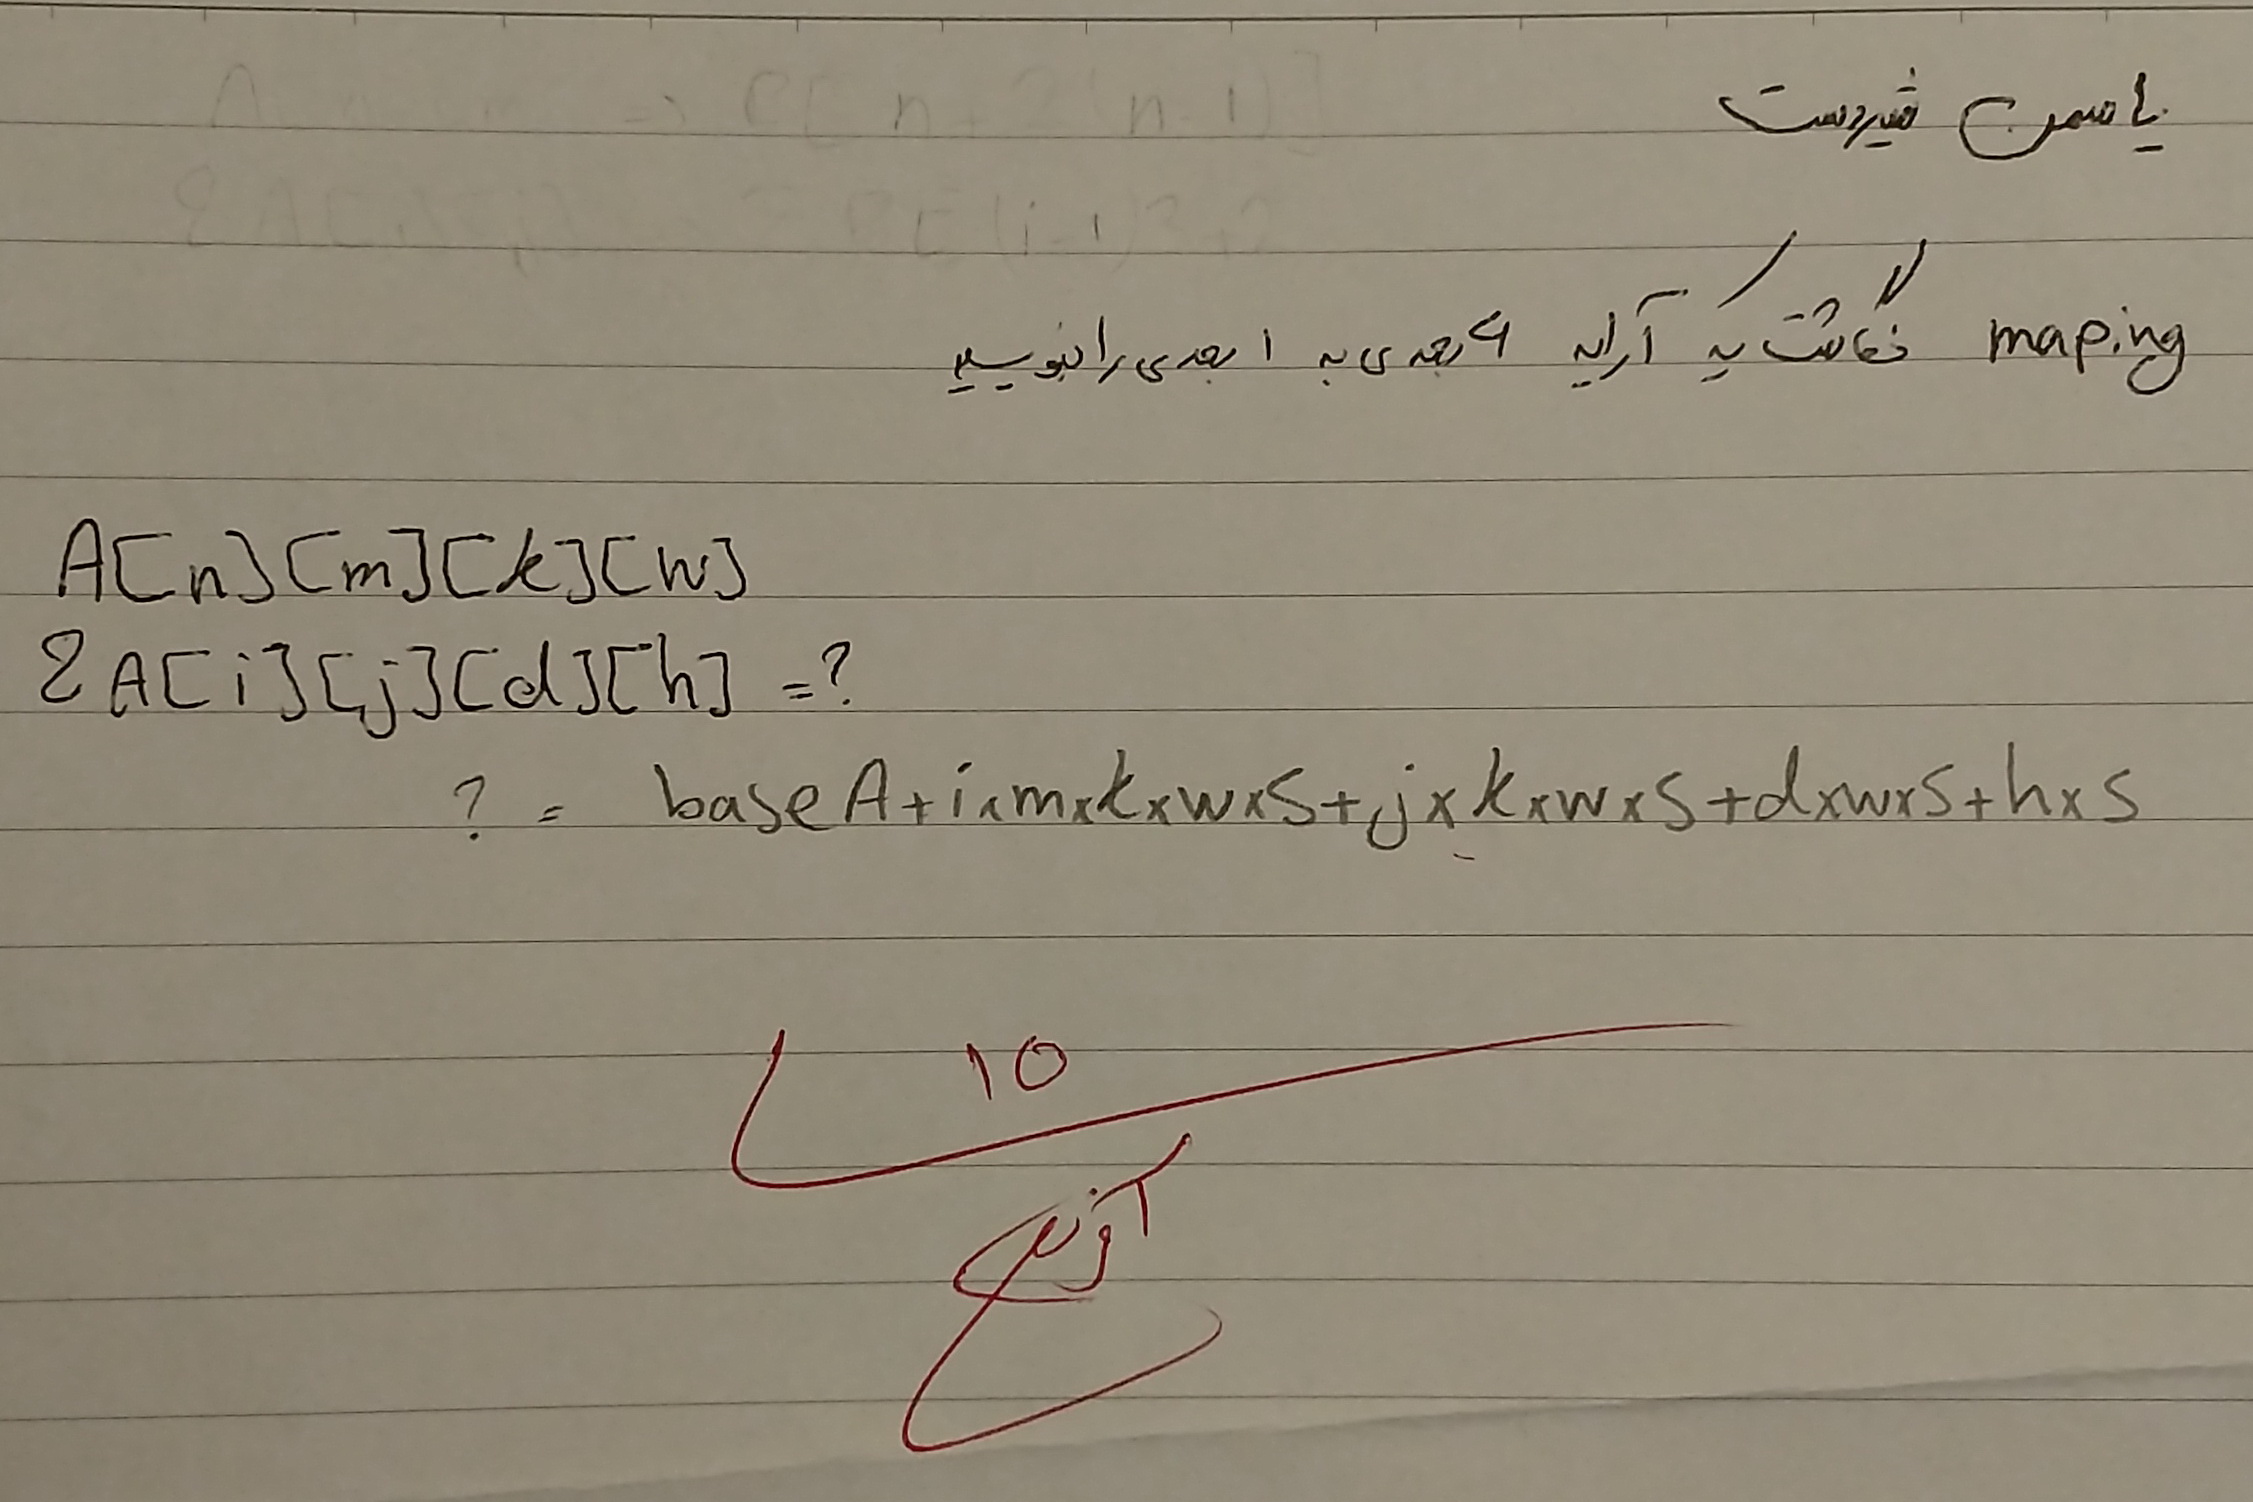 یاسمن شیردست
maping نگاشت یک آرایه ۴ بعدی به ۱ بعدی را بنویسید
A[n][m][k][w]
&A[i][j][d][h] =?
? = baseA+i×m×k×w×s+j×k×w×s+d×w×s+h×s
10